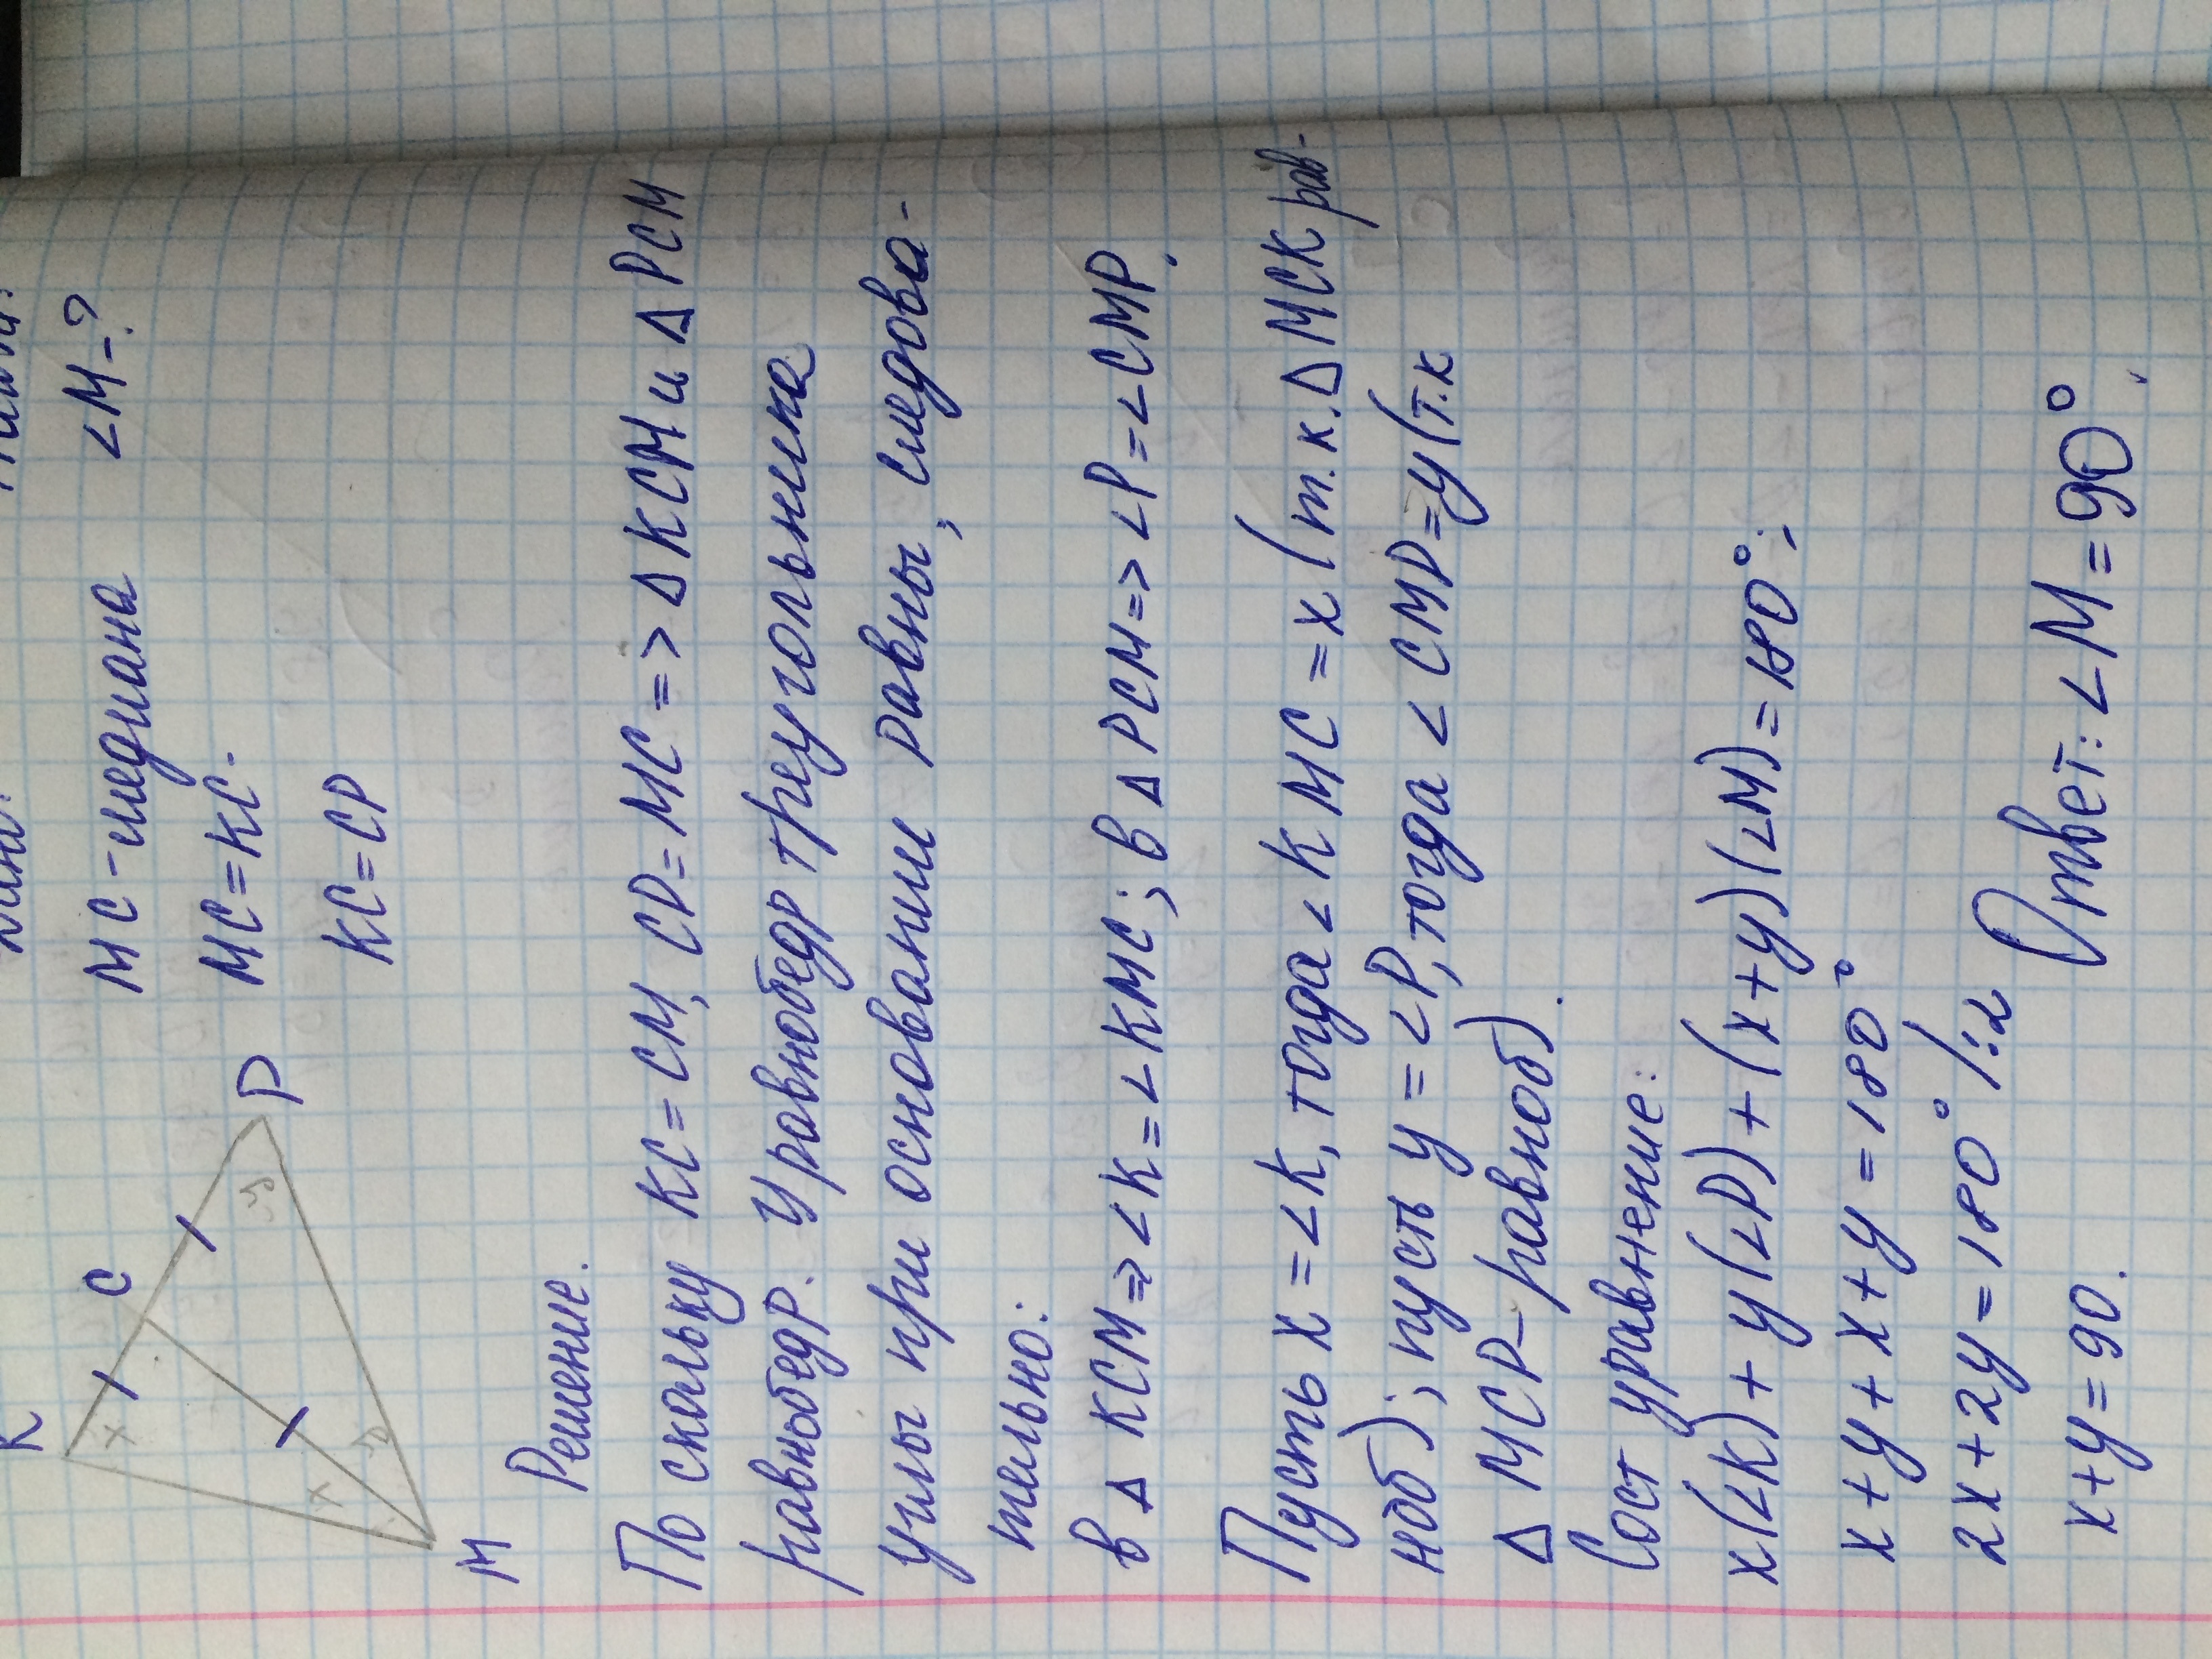 K
C
P
M
x
x
y
y
MC - медиана
MC = KC.
KC = CP
∠M - ?
Решение.
По скольку KC = CM, CP = MC => Δ KCM и Δ PCM
равнобедр. У равнобедр треугольника
углы при основании равны, следова-
тельно:
в Δ KCM => ∠K = ∠KMC; в Δ PCM => ∠P = ∠CMP.
Пусть x = ∠K, тогда ∠KMC = x (т.к. Δ MCK рав-
ноб); пусть y = ∠P, тогда ∠CMP = y (т.к
Δ MCP - равноб).
Сост уравнение:
x (∠K) + y (∠P) + (x + y) (∠M) = 180°;
x + y + x + y = 180°
2x + 2y = 180° /:2
x + y = 90.
Ответ: ∠M = 90°.